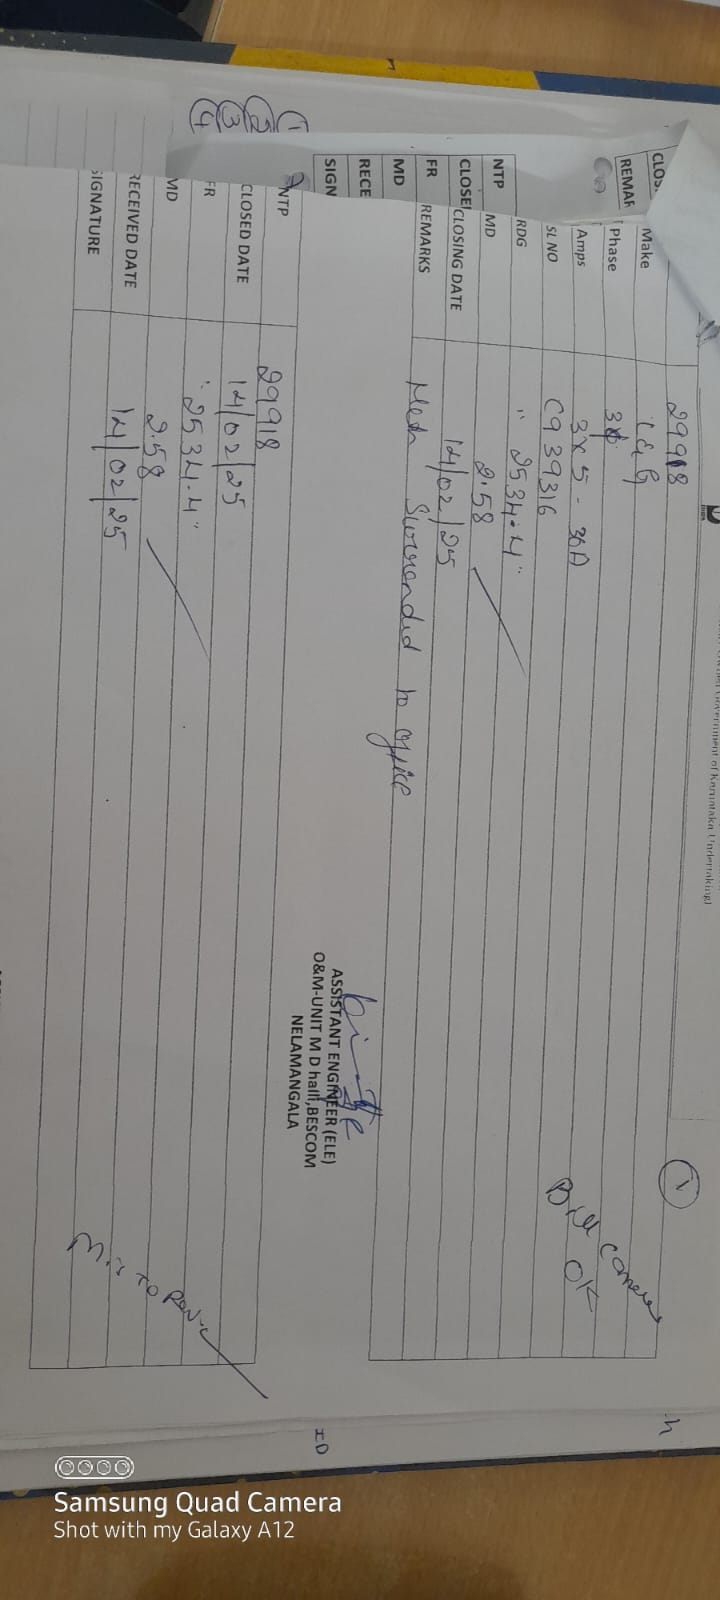 Government of Karnataka Undertaking)
1
29918
Make L&G
Phase 3ϕ
Amps 3x5-30A
SL NO C939316
RDG "2534.4"
MD 2.58
CLOSING DATE 14/02/25
REMARKS Meter Surrended to office
Bill
OK
CLOS
REMAR
NTP
CLOSE
FR
MD
RECE
SIGN
ASSISTANT ENGINEER (ELE)
O&M-UNIT M D halli,BESCOM
NELAMANGALA
1
2
3
4
NTP 29918
CLOSED DATE 14/02/25
FR "2534.4"
MD 2.58
RECEIVED DATE 14/02/25
SIGNATURE
Samsung Quad Camera
Shot with my Galaxy A12